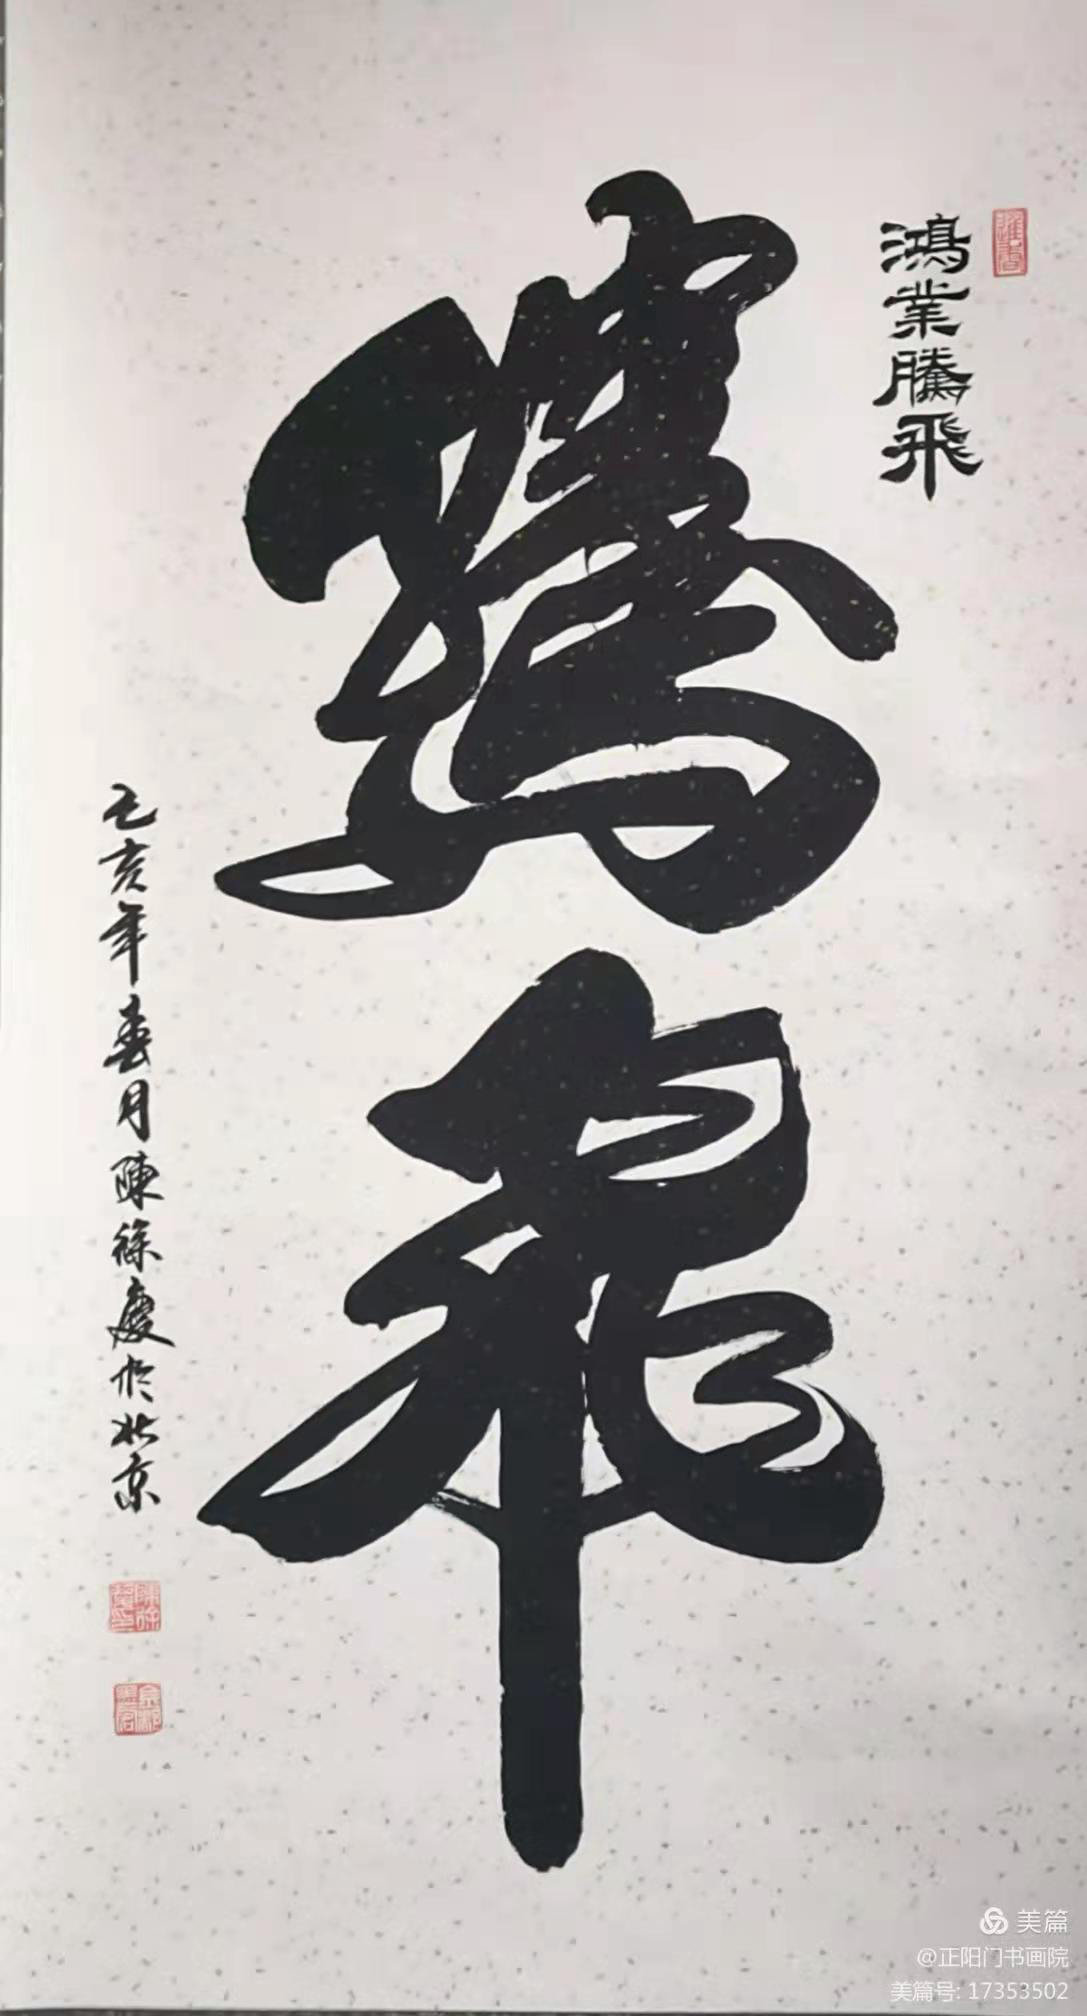 鴻業騰飛
騰飛
己亥年春月陳徐慶於北京
美篇
@正阳门书画院
美篇号: 17353502